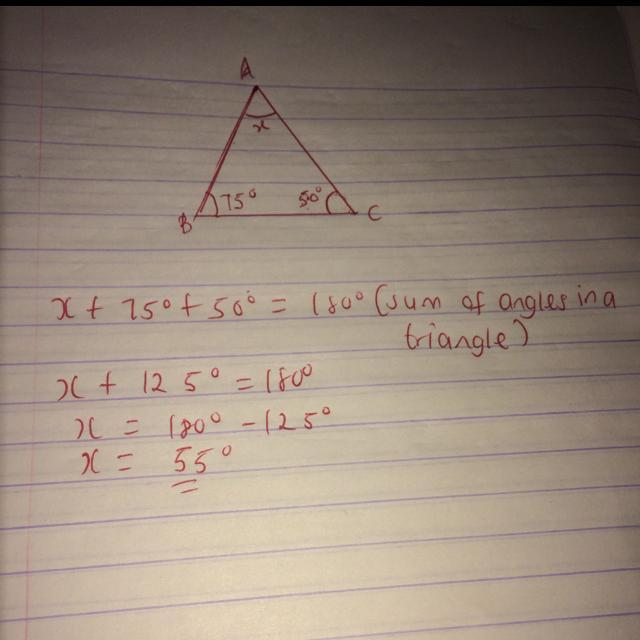 A
x
B 75° 50° C
x + 75° + 50° = 180° (sum of angles in a
triangle)
x + 125° = 180°
x = 180° - 125°
x = 55°